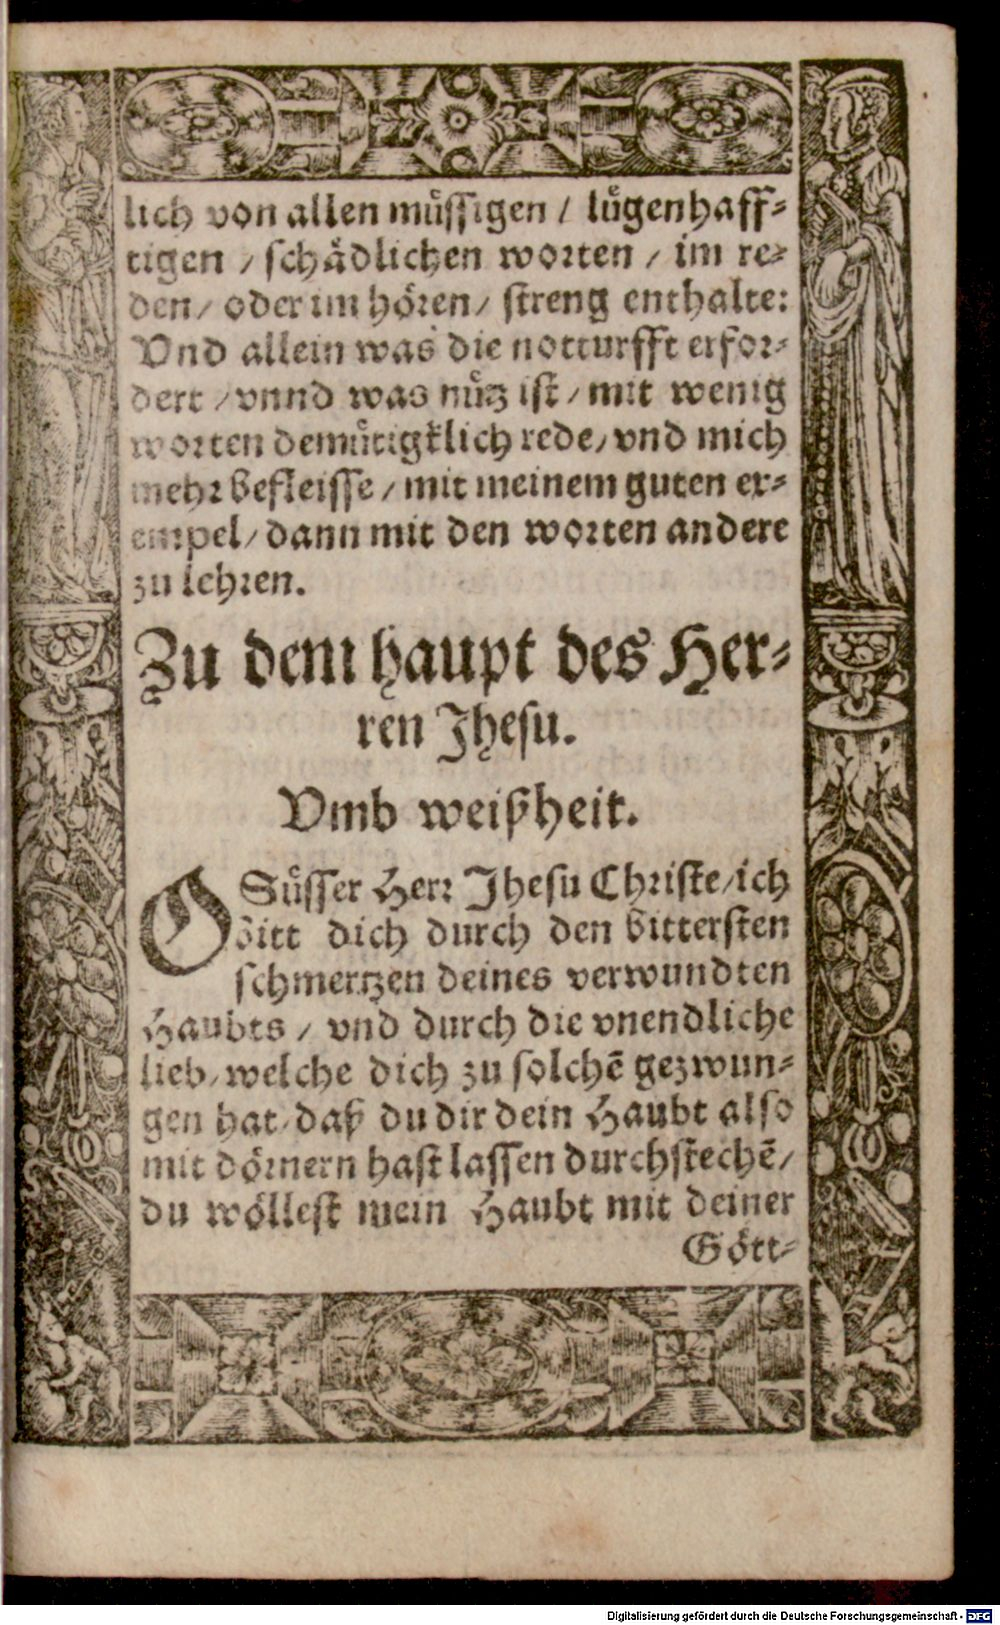 lich von allen müssigen / lügenhaff-
tigen / schädlichen worten / im re-
den / oder im hören / streng enthalte:
Vnd allein was die notturfft erfor-
dert / vnnd was nütz ist / mit wenig
worten demütigklich rede / vnd mich
mehr befleisse / mit meinem guten ex-
empel / dann mit den worten andere
zu lehren.
Zu dem haupt des Her-
ren Jhesu.
Vmb weißheit.
O Süsser Herr Jhesu Christe / ich
bitt dich durch den bittersten
schmertzen deines verwundten
Haubts / vnd durch die vnendliche
lieb / welche dich zu solchẽ gezwun-
gen hat / daß du dir dein Haubt also
mit dörnern hast lassen durchstechẽ /
du wöllest mein Haubt mit deiner
Gött-
Digitalisierung gefördert durch die Deutsche Forschungsgemeinschaft - DFG